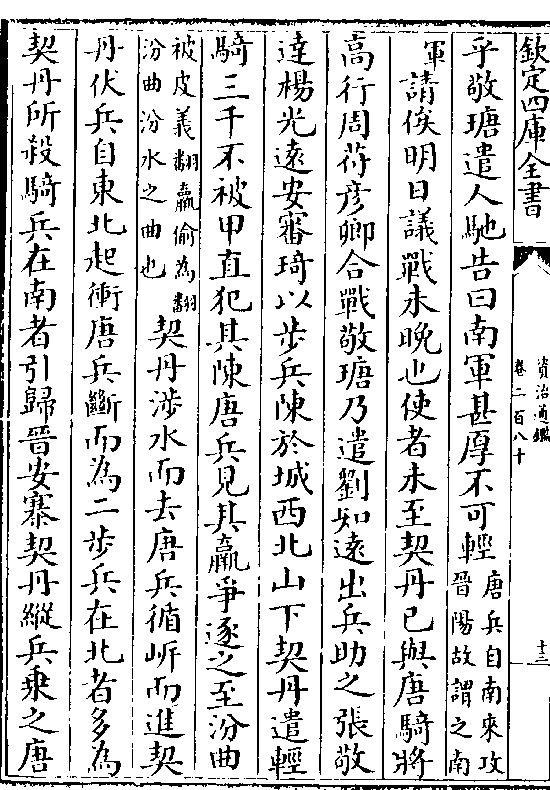 欽定四庫全書
資治通鑑
卷二百八十
十三
乎敬瑭遣人馳告曰南軍甚厚不可輕唐兵自南來攻晉陽故謂之南
軍請俟明日議戰未晚也使者未至契丹已與唐騎將
高行周苻彥卿合戰敬瑭乃遣劉知遠出兵助之張敬
達楊光遠安審琦以步兵陳於城西北山下契丹遣輕
騎三千不被甲直犯其陳唐兵見其羸爭逐之至汾曲
被皮義翻羸倫為翻汾曲汾水之曲也契丹涉水而去唐兵循岍而進契
丹伏兵自東北起衝唐兵斷而為二步兵在北者多為
契丹所殺騎兵在南者引歸晉安寨契丹縱兵乘之唐